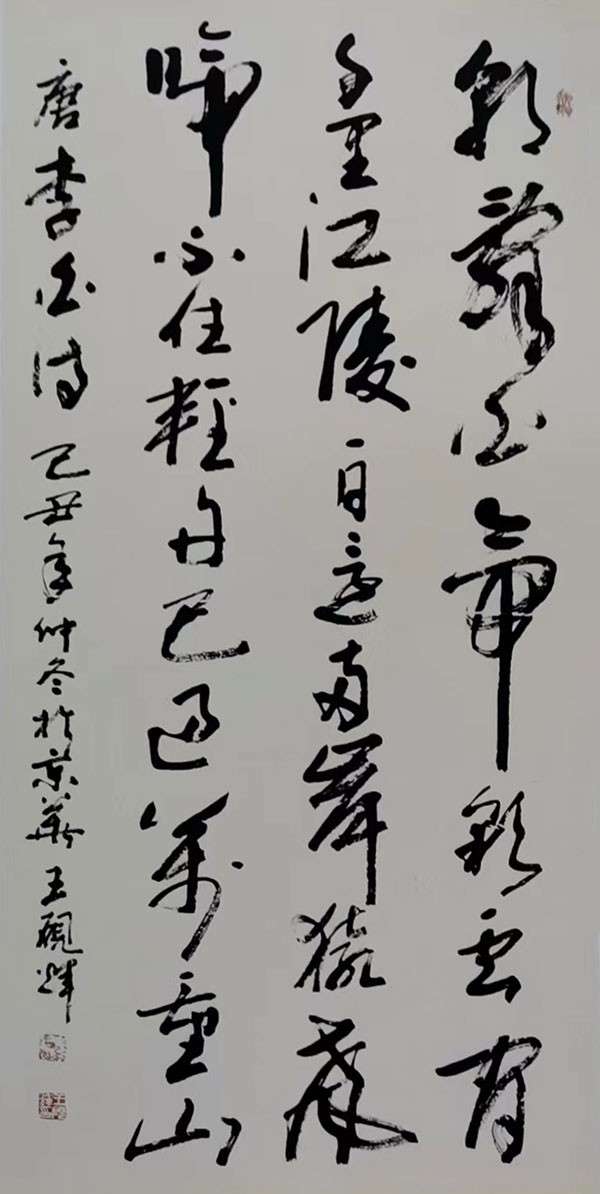 朝辭白帝彩云間
千里江陵一日還兩岸猿聲
啼不住輕舟已過萬重山
唐李白詩 己丑年仲冬於京華 王硯輝